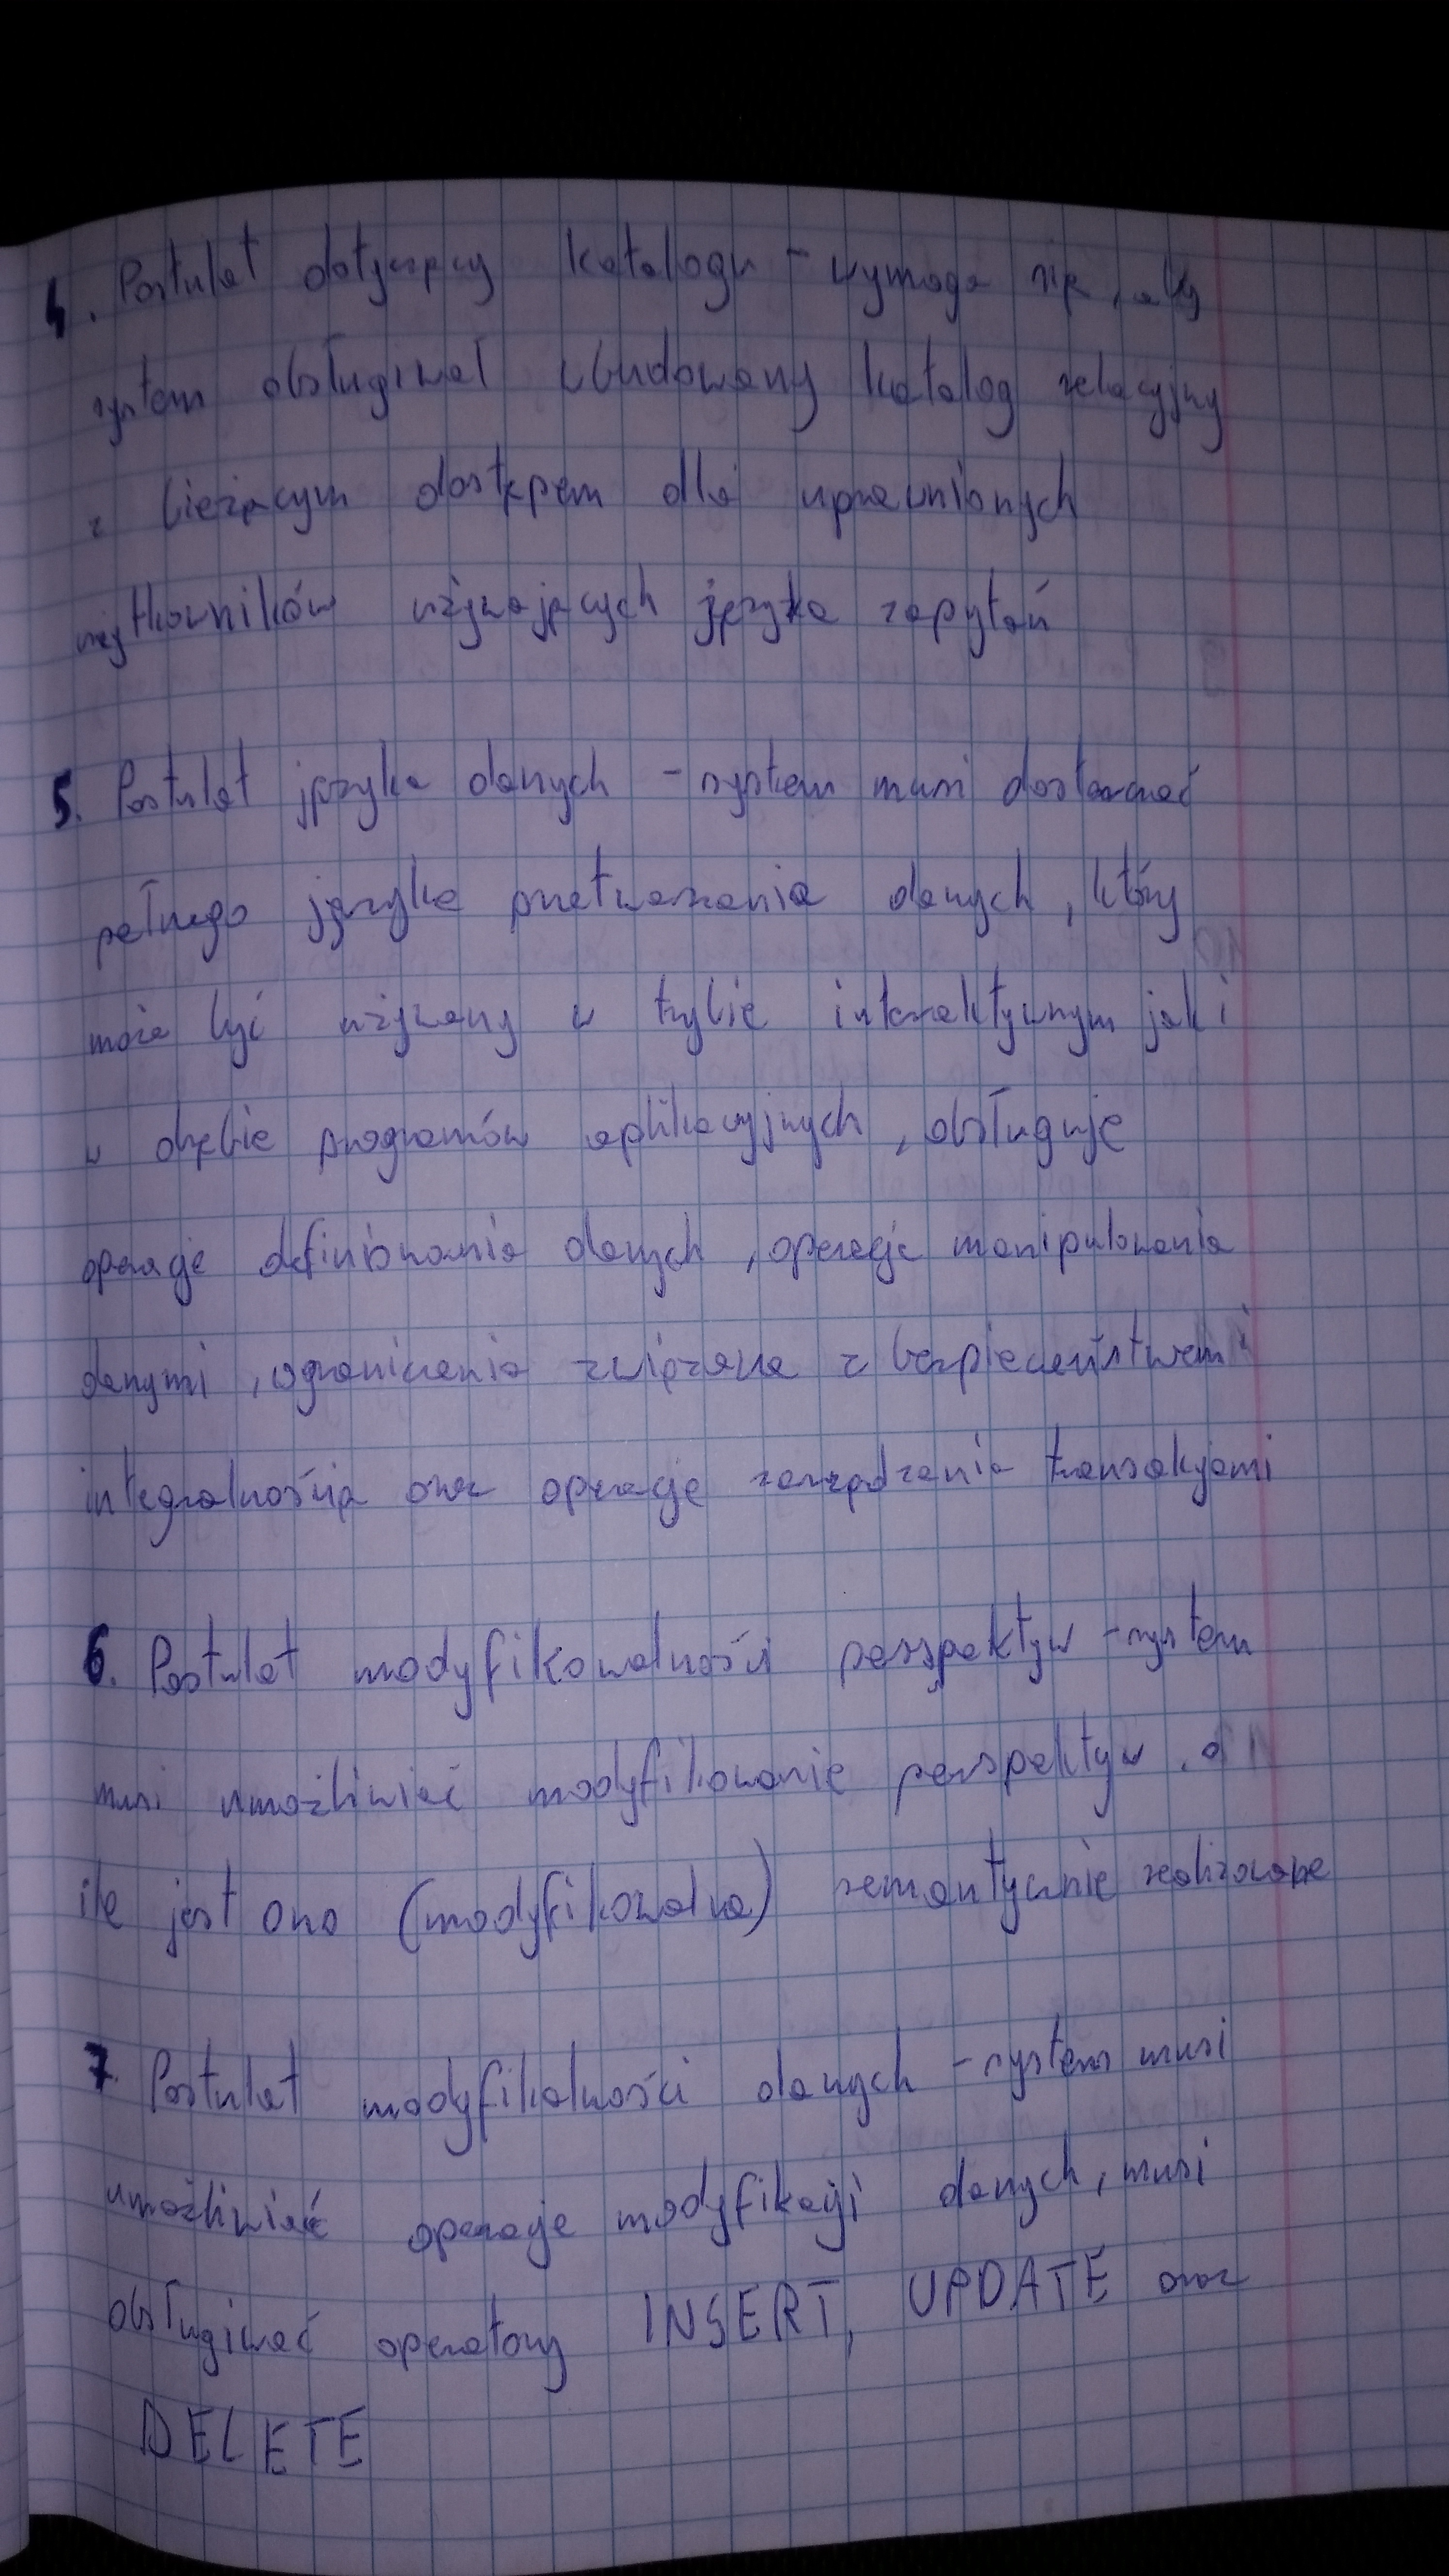 4. Postulat dotyczący katalogu - wymaga się, aby
system obsługiwał wbudowany katalog relacyjny
z bieżącym dostępem dla uprawnionych
użytkowników używających języka zapytań
5. Postulat języka danych - system musi dostarczać
pełnego języka przetwarzania danych, który
może być używany w trybie interaktywnym jak i
w obrębie programów aplikacyjnych, obsługuje
operacje definiowania danych, operacje manipulowania
danymi, ograniczenia związane z bezpieczeństwem i
integralnością oraz operacje zarządzania transakcjami
6. Postulat modyfikowalności perspektyw - system
musi umożliwiać modyfikowanie perspektyw, o
ile jest ono (modyfikowalne) semantycznie realizowane
7. Postulat modyfikalności danych - system musi
umożliwiać operacje modyfikacji danych, musi
obsługiwać operatory INSERT, UPDATE oraz
DELETE